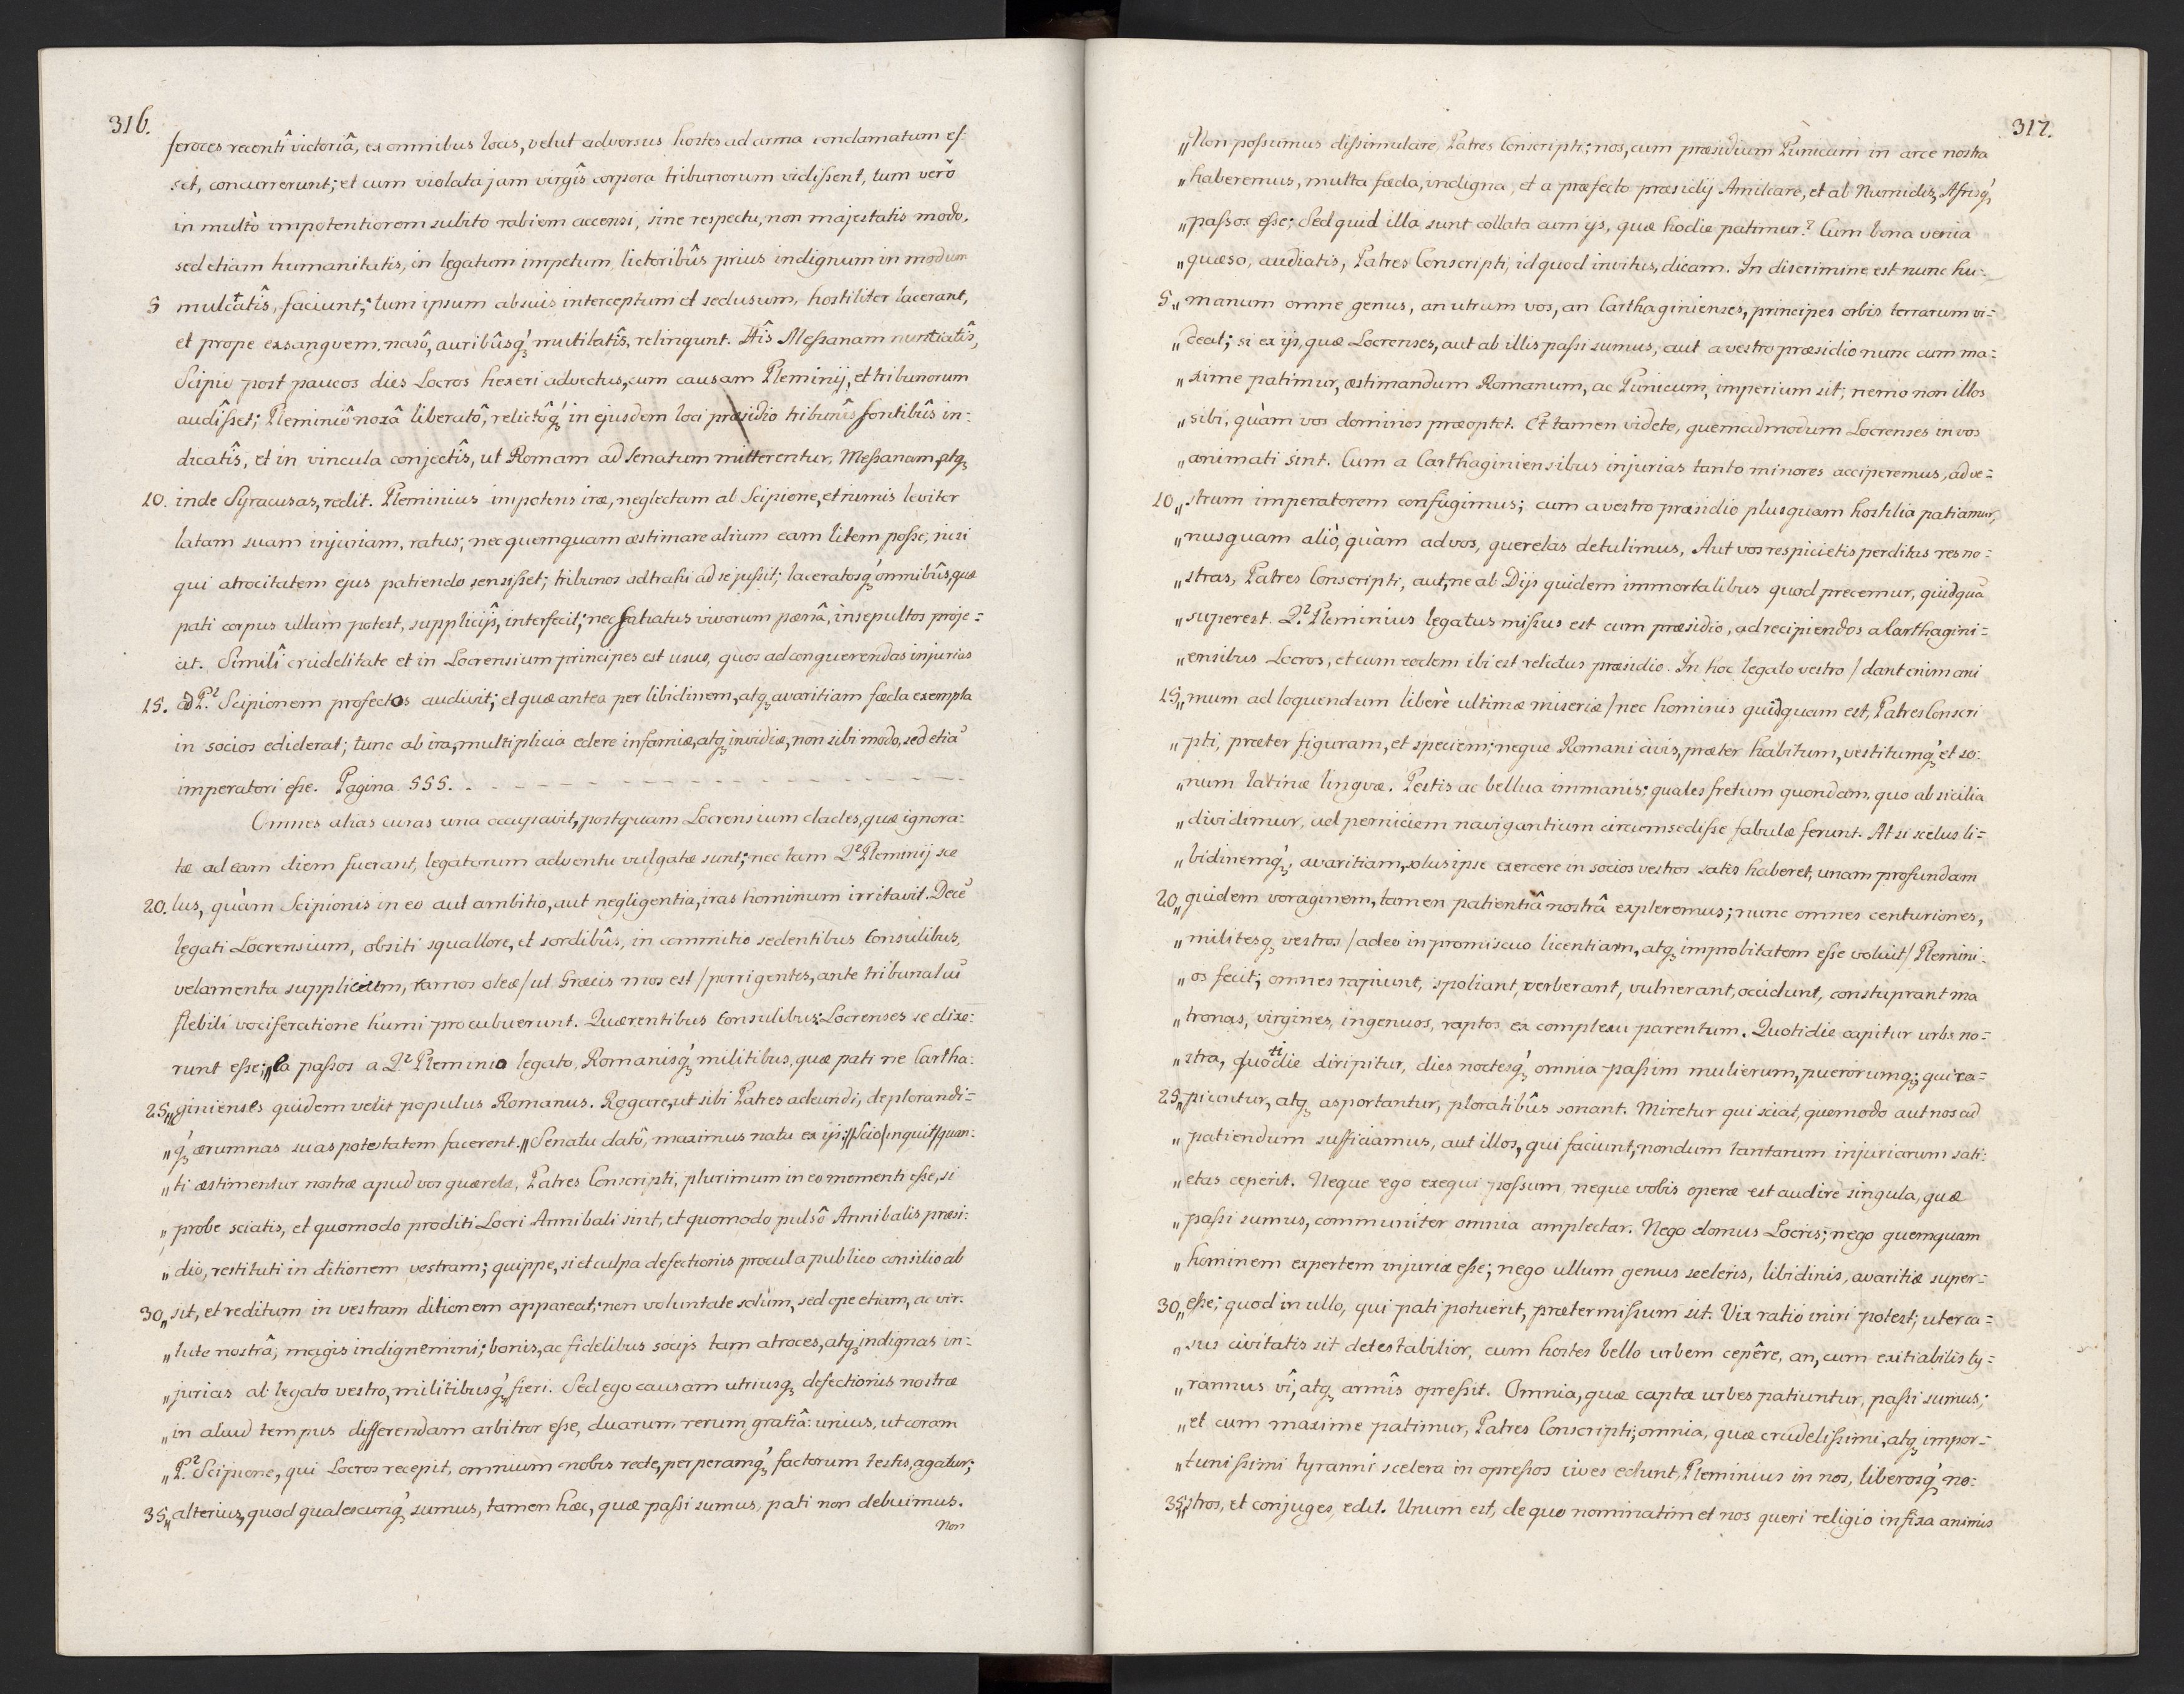 316.
feroces recentî victoriâ, ex omnibus locis, velut adversus hostes ad arma conclamatum es-
set, concurrerunt; et cum violata jam virgîs corpora tribunorum vidissent, tum verò
in multò impotentiorem subito rabiem accensi, sine respectu, non majestatis modo,
sed etiam humanitatis, in legatum impetum, lictoribûs prius indignum in modum
5 mulctatîs, faciunt; tum ipsum ab suis interceptum et seclusum, hostiliter lacerant,
et prope exsanguem, nasô, auribûsq́ꝫ mutilatîs, relinqunt. Hîs Messanam nuntiatîs,
Scipio post paucos dies Locros hexeri advectus, cum causam Pleminij, et tribunorum
audîsset; Pleminiô noxâ liberatô, relictôq́ꝫ in ejusdem loci præsidio tribunîs sontibûs in-
dicatîs, et in vincula conjectîs, ut Romam ad Senatum mitterentur, Messanam, atqꝫ
10. inde Syracusas, redit. Pleminius impotens iræ, neglectam ab Scipione, et nimis leviter
latam suam injuriam, ratus; nec quemquam æstimare alium eam litem posse, nisi
qui atrocitatem ejus patiendo sensisset; tribunos adtrahi ad se jussit; laceratosq́ꝫ omnibûs, quæ
pati corpus ullum potest, supplicijs, interfecit; nec satiatus vivorum pœnâ, insepultos proje-
cit. Similî crudelitate et in Locrensium principes est usus, quos ad conquerendas injurias
15. ad P. Scipionem profectos audivit; et quæ antea per libidinem, atqꝫ avaritiam fœda exempla
in socios ediderat; tunc ab ira, multiplicia edere infamiæ, atqꝫ invidiæ, non sibi modo, sed etiã
imperatori esse. Pagina 555.
Omnes alias curas una occupavit, postquam Locrensium clades, quæ ignora-
tæ ad eam diem fuerant, legatorum adventu vulgatæ sunt; nec tam Q. Pleminij sce
20. lus, quàm Scipionis in eo aut ambitio, aut negligentia, iras hominum irritavit. Decẽ
legati Locrensium, obsiti squallore, et sordibûs, in commitio sedentibus Consulibus,
velamenta supplicum, ramos oleæ / ut Græcis mos est / porrigentes, ante tribunal cũ
flebili vociferatione humi procubuerunt. Quærentibus Consulibus: Locrenses se dixe-
runt esse; „Ea passos a Q. Pleminio legato, Romanisq́ꝫ militibus, quæ pati ne Cartha-
25. „ginienses quidem velit populus Romanus. Rogare, ut sibi Patres adeundi, deplorandi-
„q́ꝫ ærumnas suas potestatem facerent.„ Senatu datô, maximus natu ex ijs: „Scio / inquit / quan-
„ti æstimentur nostræ apud vos querelæ, Patres Conscripti, plurimum in eo momenti esse, si
„probe sciatis, et quomodo proditi Locri Annibali sint, et quomodo pulsô Annibalis præsi-
„dio, restituti in ditionem vestram; quippe, si et culpa defectionis procul a publico consilio ab
30 „sit, et reditum in vestram ditionem appareat; non voluntate solùm, sed ope etiam, ac vir-
„tute nostrâ; magis indignemini; bonis, ac fidelibus socijs tam atroces, atqꝫ indignas in-
„jurias ab legato vestro, militibusq́ꝫ fieri. Sed ego causam utriusqꝫ defectionis nostræ
„in aliud tempus differendam arbitror esse, duarum rerum gratiâ: unius, ut coram
„P. Scipione, qui Locros recepit, omnium nobis recte, perperamq́ꝫ factorum testis, agatur;
35 „alterius, quod qualescunq́ꝫ sumus, tamen hæc, quæ passi sumus, pati non debuimus.
Non
317.
„Non possumus dissimulare, Patres Conscripti; nos, cum præsidium Punicum in arce nostra
„haberemus, multa fœda, indigna, et a præfecto præsidij Amilcare, et ab Numidis, Afrisq́ꝫ
„passos esse; Sed quid illa sunt collata cum ijs, quæ hodie patimur? Cum bona venia
„quæso, audiatis, Patres Conscripti, id quod invitus, dicam. In discrimine est nunc hu-
5 „manum omne genus, an utrum vos, an Carthaginienses, principes orbis terrarum vi-
„deat; si ex ijs, quæ Locrenses, aut ab illis passi sumus, aut a vestro præsidio nunc cum ma-
„xime patimur, æstimandum Romanum, ac Punicum, imperium sit; nemo non illos
„sibi, quàm vos dominos præoptet. Et tamen videte, quemadmodum Locrenses in vos
„animati sint. Cum a Carthaginiensibus injurias tanto minores acciperemus, ad ve-
10 „strum imperatorem confugimus; cum a vestro præsidio plusquam hostilia patiamur,
„nusquam aliò, quàm ad vos, querelas detulimus, Aut vos respicietis perditas res no-
„stras, Patres Conscripti, aut, ne ab Dijs quidem immortalibus quod precemur, quidquã
„superest. Q. Pleminius legatus missus est cum præsidio, ad recipiendos a Carthagini-
„ensibus Locros, et cum eodem ibi est relictus præsidio. In hoc legato vestro / dant enim ani
15 „mum ad loquendum liberè ultimæ miseriæ / nec hominis quidquam est, Patres Conscri
„pti, præter figuram, et speciem; neque Romani civis, præter habitum, vestitumq́ꝫ et so-
„num latinæ linguæ. Pestis ac bellua immanis; quales fretum quondam, quo ab sicilia
„dividimur, ad perniciem navigantium circumsedisse fabulæ ferunt. At si scelus li-
„bidinemq́ꝫ, avaritiam, solus ipse exercere in socios vestros satis haberet, unam profundam
20 „quidem voraginem, tamen patientiâ nostrâ expleremus; nunc omnes centuriones,
„militesqꝫ vestros / adeo in promiscuo licentiam, atqꝫ improbitatem esse voluit / Plemini-
„os fecit; omnes rapiunt, spoliant, verberant, vulnerant, occidunt, constuprant ma
„tronas, virgines, ingenuos, raptos ex complexu parentum. Quotidie capitur urbs no-
„stra, quotidie diripitur, dies noctesq́ꝫ omnia passim mulierum, puerorumqꝫ; qui ra-
25 „piuntur, atqꝫ asportantur, ploratibûs sonant. Miretur qui sciat, quomodo aut nos ad
„patiendum sufficiamus, aut illos, qui faciunt, nondum tantarum injuriarum sati-
„etas ceperit. Neque ego exequi possum, neque vobis operæ est audire singula, quæ
„passi sumus, communiter omnia amplectar. Nego domus Locris; nego quemquam
„hominem expertem injuriæ esse; nego ullum genus sceleris, libidinis, avaritiæ super-
30 „esse; quod in ullo, qui pati potuerit, prætermissum sit. Vix ratio iniri potest; uter ca-
„sus civitatis sit detestabilior, cum hostes bello urbem cepêre, an, cum exitiabilis ty-
„rannus vî, atqꝫ armîs opressit. Omnia, quæ captæ urbes patiuntur, passi sumus;
„et cum maxime patimur, Patres Conscripti; omnia, quæ crudelissimi, atqꝫ impor-
„tunissimi tyranni scelera in opressos cives edunt, Pleminius in nos, liberosq́ꝫ no-
35 „stros, et conjuges, edit. Unum est, de quo nominatim et nos queri religio infixa animis